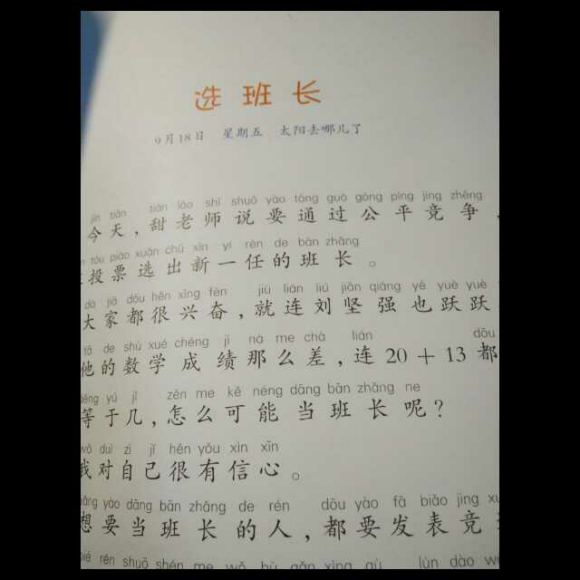 选班长
9月18日 星期五 太阳去哪儿了
jīn tiān tián lǎo shī shuō yào tōng guò gōng píng jìng zhēng
今天,甜老师说要通过公平竞争,
tóu piào xuǎn chū xīn yí rèn de bān zhǎng
投票选出新一任的班长。
dà jiā dōu hěn xīng fèn jiù lián liú jiān qiáng yě yuè yuè
大家都很兴奋,就连刘坚强也跃跃
tā de shù xué chéng jì nà me chà lián dōu
他的数学成绩那么差,连20+13都
děng yú jǐ zěn me kě néng dāng bān zhǎng ne
等于几,怎么可能当班长呢?
wǒ duì zì jǐ hěn yǒu xìn xīn
我对自己很有信心。
xiǎng yào dāng bān zhǎng de rén dōu yào fā biǎo jìng
想要当班长的人,都要发表竞
bié rén shuō shén me wǒ bù gǎn xìng qù lún dào